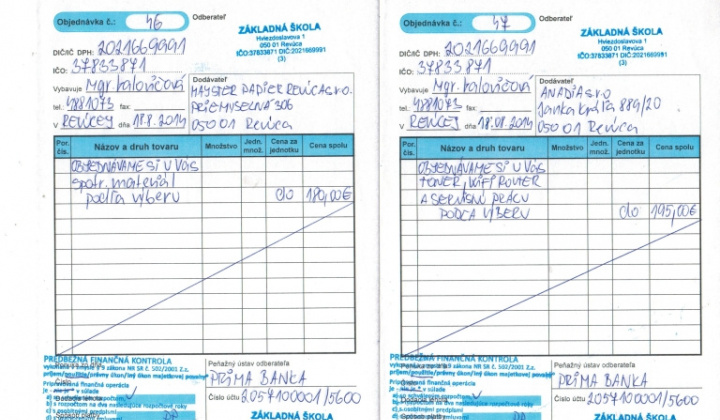 Objednávka č.: 46
Odberateľ
ZÁKLADNÁ ŠKOLA
Hviezdoslavova 1
050 01 Revúca
IČO:37833871 DIČ:2021669991
(3)
DIČ/IČ DPH: 2021669991
IČO: 37833871
Vybavuje Mgr. Kalovičová
tel.: 4881073 fax:
V REVÚCEJ dňa 18.8.2014
Dodávateľ
MAYSTER PAPIER REVÚCA s.r.o.
PRIEMYSELNÁ 306
050 01 Revúca
Por. čís.
Názov a druh tovaru
Množstvo
Jedn. množ.
Cena za jednotku
Cena spolu
OBJEDNÁVAME SI U VÁS
spotr. materiál
podľa výberu do 180,00€
PREDBEŽNÁ FINANČNÁ KONTROLA
vykonaná v zmysle § 9 zákona NR SR č. 502/2001 Z.z.
Pripravovaná finančná operácia
je - nie je * v súlade
a) s rozpočtom
b) s rozpočtom na dva nasledujúce rozpočtové roky
c) s osobitnými predpismi
Peňažný ústav odberateľa
PRIMA BANKA
Číslo účtu 2057100001/5600
ZÁKLADNÁ ŠKOLA
Objednávka č.: 47
Odberateľ
ZÁKLADNÁ ŠKOLA
Hviezdoslavova 1
050 01 Revúca
IČO:37833871 DIČ:2021669991
(3)
DIČ/IČ DPH: 2021669991
IČO: 37833871
Vybavuje Mgr. Kalovičová
tel.: 4881073 fax:
V REVÚCEJ dňa 18.08.2014
Dodávateľ
ANADIA s.r.o
Janka Kráľa 889/20
050 01 Revúca
Por. čís.
Názov a druh tovaru
Množstvo
Jedn. množ.
Cena za jednotku
Cena spolu
OBJEDNÁVAME SI U VÁS
TONER, WIFI ROUTER
A SERVISNÚ PRÁCU
PODĽA VÝBERU do 195,00€
PREDBEŽNÁ FINANČNÁ KONTROLA
vykonaná v zmysle § 9 zákona NR SR č. 502/2001 Z.z.
Pripravovaná finančná operácia
Peňažný ústav odberateľa
PRIMA BANKA
Číslo účtu 2057100001/5600
ZÁKLADNÁ ŠKOLA